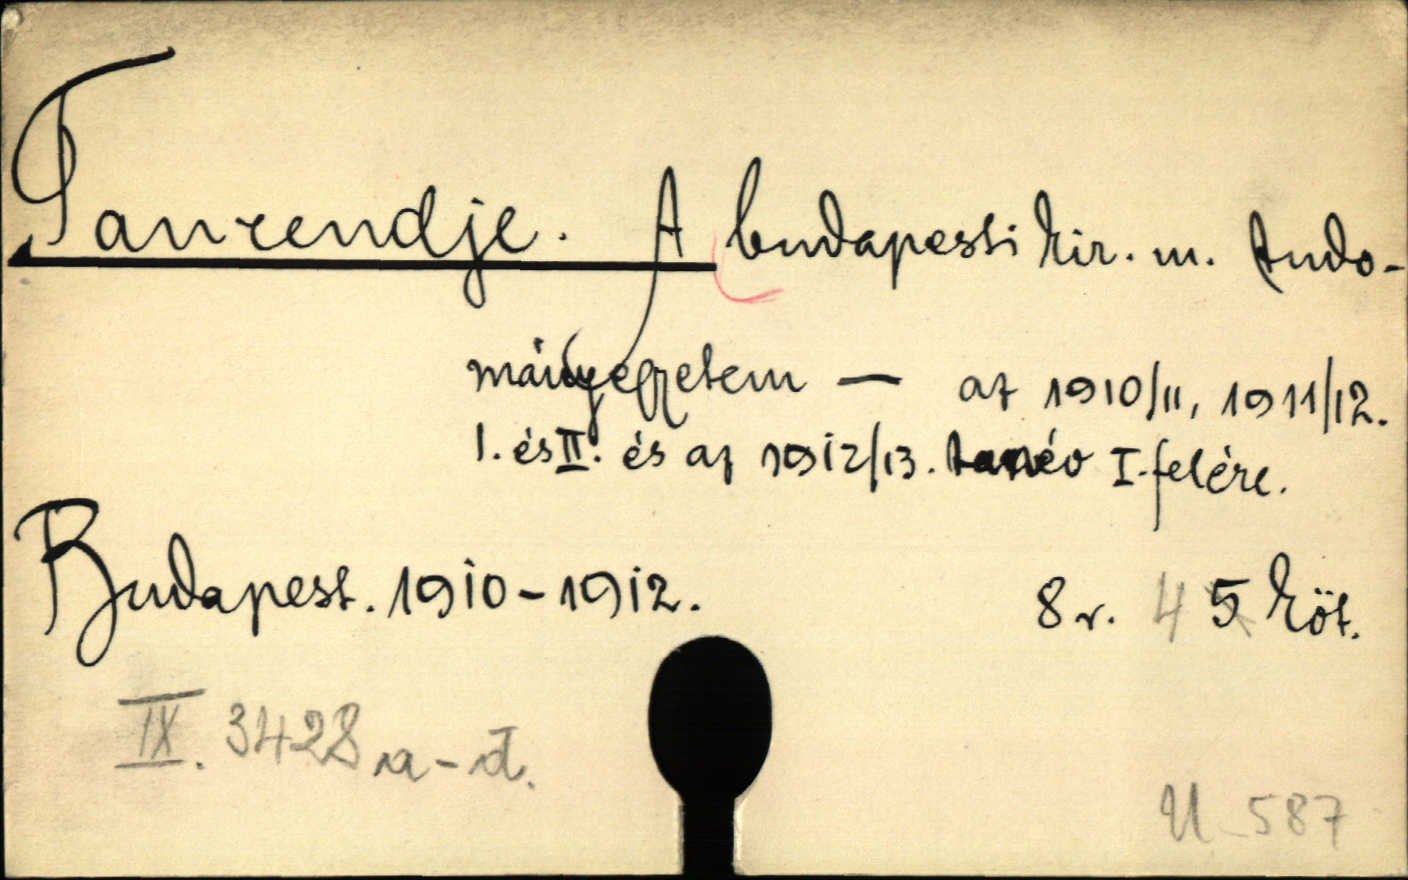 Tanrendje. A budapesti kir. m. tudo-
mányegyetem — az 1910/11, 1911/12.
I. és II. és az 1912/13. tanév I. felére.
Budapest. 1910-1912. 8r. 4 5 köt.
IX. 3428 a-d.
U_587